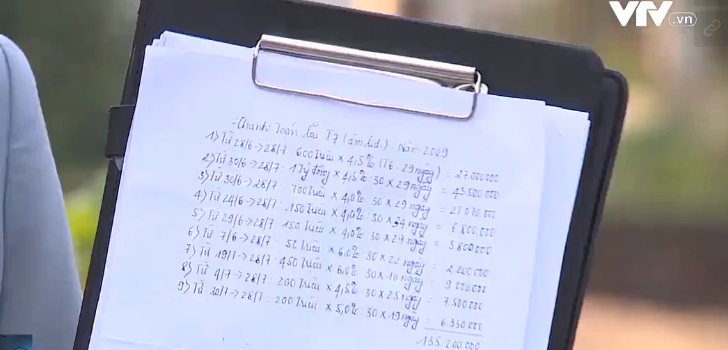 VTV.vn
Thanh Toán Lãi T7 (âm lịch). Năm 2009
1) Từ 28/6→28/7: 600 triệu × 4,5% (T6: 29 ngày) = 27.000.000
2) Từ 30/6→28/7: 1 Tỷ đồng × 4,5%: 30 × 29 ngày = 43.500.000
3) Từ 30/6→28/7: 700 triệu × 4,0%: 30 × 29 ngày =
4) Từ 24/6→28/7: 150 triệu × 4,0%: 30 × 34 ngày = 6.800.000
5) Từ 29/6→28/7: 150 triệu × 4,0%: 30 × 29 ngày = 5.800.000
6) Từ 7/6→28/7: 50 triệu × 6,0%: 30 × 22 ngày = 2.200.000
7) Từ 19/7→28/7: 450 triệu × 6,0%: 30 × 10 ngày = 9.000.000
8) Từ 4/7→28/7: 200 triệu × 4,5%: 30 × 25 ngày = 7.500.000
9) Từ 10/7→28/7: 200 triệu × 5,0%: 30 × 19 ngày = 6.330.000
135.200.000